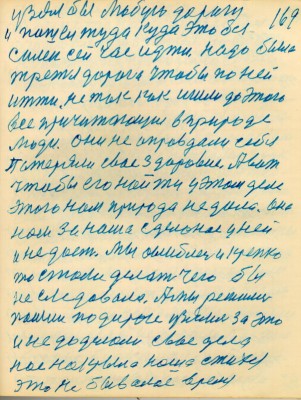 взял бы любую дорогу 169
и пошел туда куда это бы.
самим сейчас идти надо была
третья дорога чтобы по ней
итти, не так как ишли до этого
все причитающие в природе
люди. Они не оправдали себя
Потеряли свое здоровие. А вот
чтобы его найти у этом деле
этого нам природа не дала. Она
нам за наша сделоное у ней
и не дает. Мы ошиблись и крепко
то стали делат чего бы
не следовала. А мы решили
пошли по дироге взяли за это
и не додумали свое дела
нас на
это не бывалое время